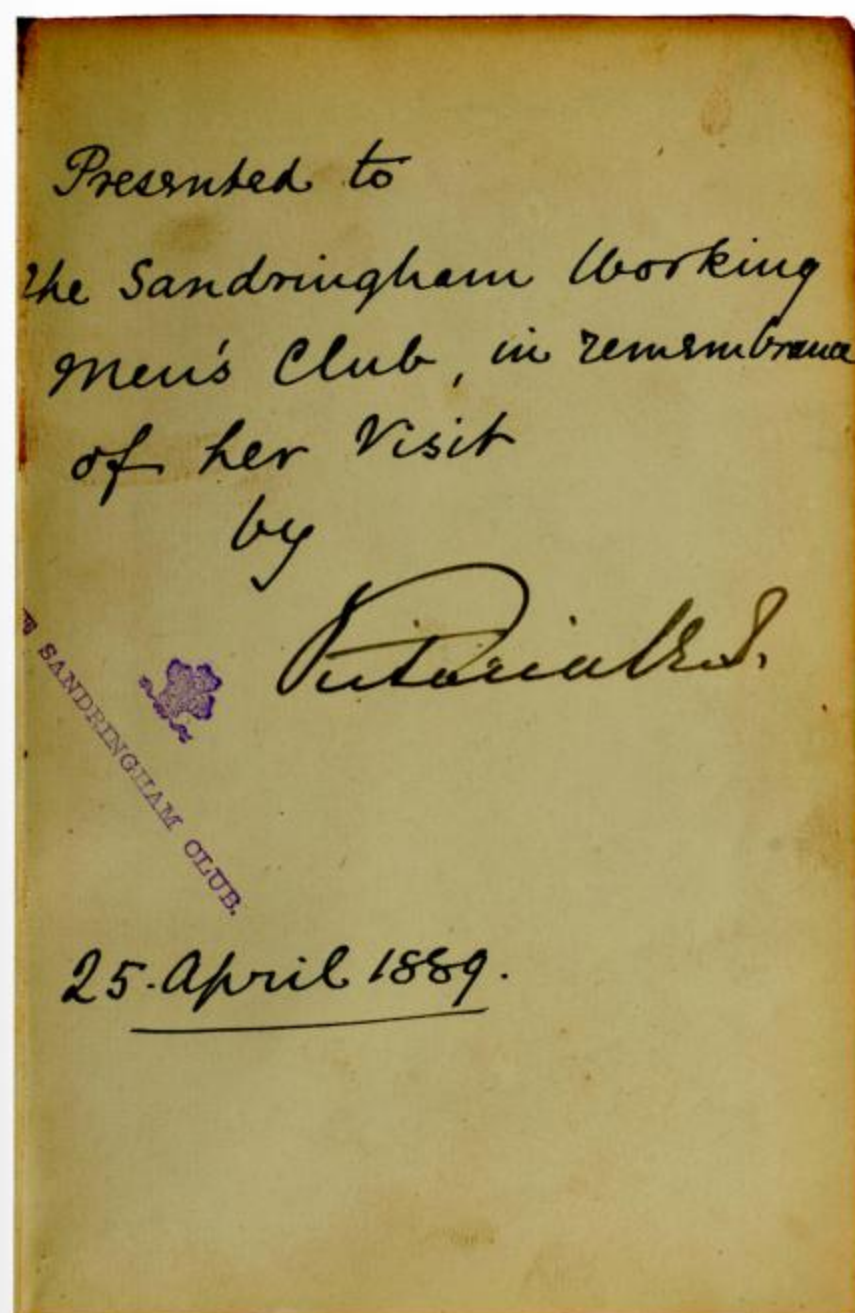 Presented to
The Sandringham Working
Men's Club, in remembrance
of her Visit
by
Victoria R.I.
SANDRINGHAM CLUB.
25. April 1889.